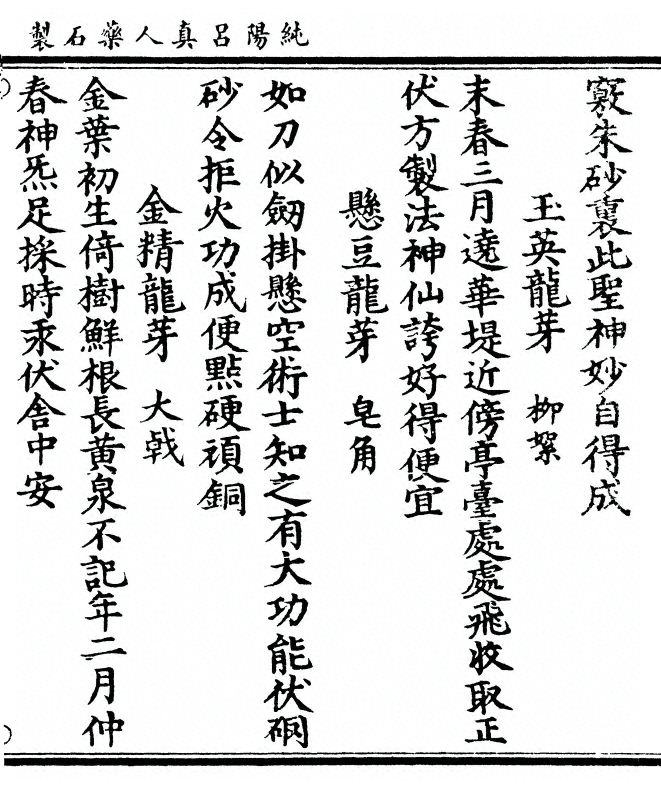 純陽呂真人藥石製
竅朱砂裏此聖神妙自得成
玉英龍芽　柳絮
末春三月遶華堤近傍亭臺處處飛收取正
伏方製法神仙誇好得便宜
懸豆龍芽　皂角
如刀似劔掛懸空術士知之有大功能伏硇
砂令拒火功成便點硬頑銅
金精龍芽　大戟
金葉初生倚樹鮮根長黄泉不記年二月仲
春神炁足採時汞伏舎中安